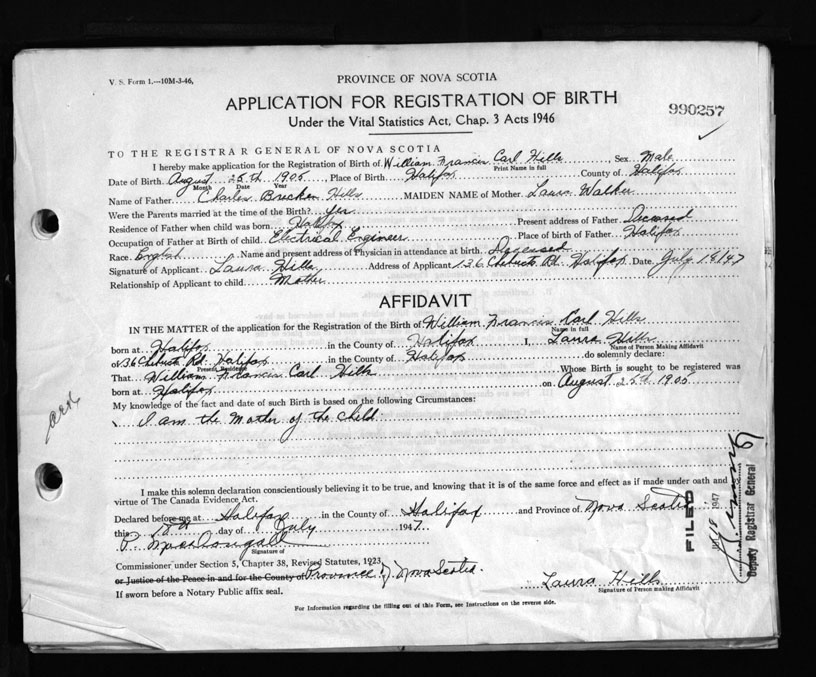 V. S. Form 1.—10M-3-46.
PROVINCE OF NOVA SCOTIA
APPLICATION FOR REGISTRATION OF BIRTH
990257
Under the Vital Statistics Act, Chap. 3 Acts 1946
TO THE REGISTRAR GENERAL OF NOVA SCOTIA
I hereby make application for the Registration of Birth of William Francis Carl Hills, Sex Male
Print Name in full
Date of Birth August 25th 1905, Place of Birth Halifax County of Halifax
Month Date Year
Name of Father Charles Hills MAIDEN NAME of Mother Laura Walker
Were the Parents married at the time of the Birth? Yes
Residence of Father when child was born Halifax Present address of Father Deceased
Occupation of Father at Birth of child Electrical Engineer Place of birth of Father Halifax
Race English Name and present address of Physician in attendance at birth Deceased
Signature of Applicant Laura Hills Address of Applicant 136 Rd. Halifax Date July 19/47
Relationship of Applicant to child Mother
AFFIDAVIT
IN THE MATTER of the application for the Registration of the Birth of William Francis Carl Hills
Name in full
born at Halifax in the County of Halifax I, Laura Hills
Name of Person Making Affidavit
of 36 Rd. Halifax in the County of Halifax do solemnly declare:
Present Residence
That William Francis Carl Hills Whose Birth is sought to be registered was
born at Halifax on August 25th 1905
My knowledge of the fact and date of such Birth is based on the following Circumstances:
I am the Mother of the child.
I make this solemn declaration conscientiously believing it to be true, and knowing that it is of the same force and effect as if made under oath and
virtue of The Canada Evidence Act.
Declared before me at Halifax in the County of Halifax and Province of Nova Scotia
this 18th day of July 1947.
Signature of
Commissioner under Section 5, Chapter 38, Revised Statutes, 1923
or Justice of the Peace in and for the County of Province of Nova Scotia.
If sworn before a Notary Public affix seal.
Laura Hills
Signature of Person making Affidavit
For Information regarding the filling out of this Form, see Instructions on the reverse side.
FILED
18 1947
Deputy Registrar General